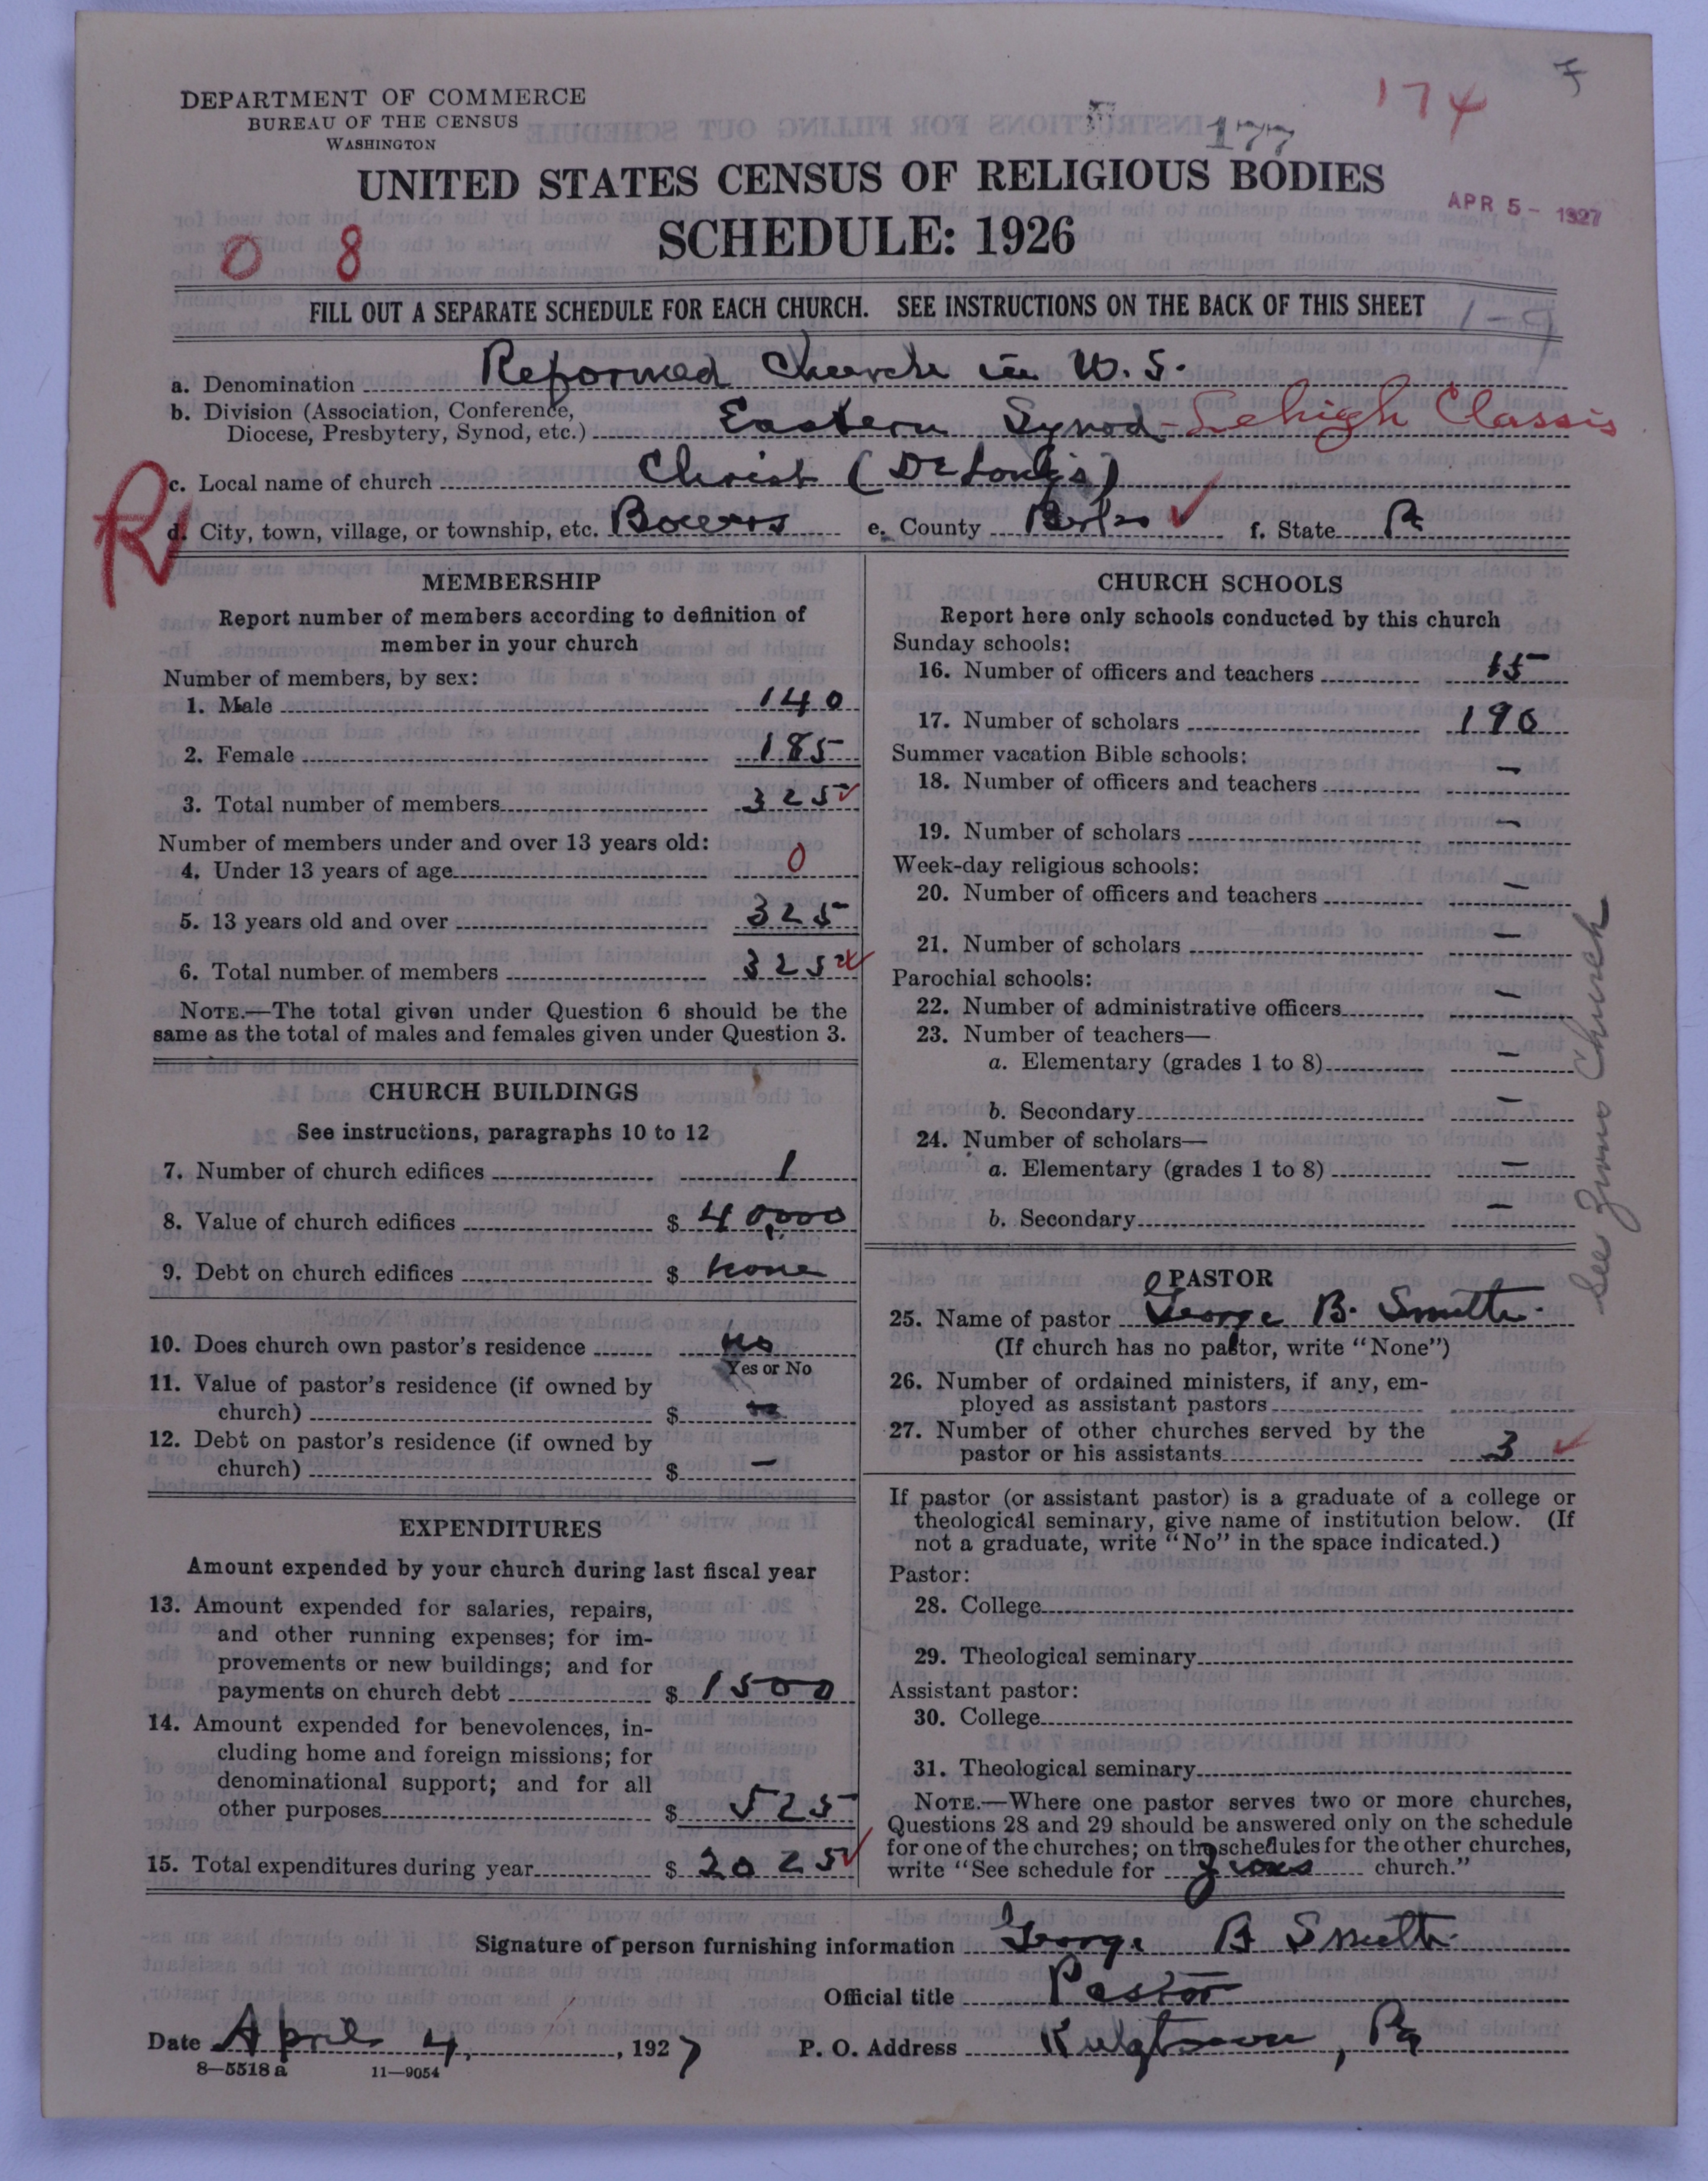 F
174
177
DEPARTMENT OF COMMERCE
BUREAU OF THE CENSUS
WASHINGTON
UNITED STATES CENSUS OF RELIGIOUS BODIES
SCHEDULE: 1926
APR 5 - 1927
0 8
FILL OUT A SEPARATE SCHEDULE FOR EACH CHURCH. SEE INSTRUCTIONS ON THE BACK OF THIS SHEET
1-9
a. Denomination Reformed Church in U.S.
b. Division (Association, Conference,
Diocese, Presbytery, Synod, etc.) Eastern Synod - Lehigh Classis
c. Local name of church Christ (DeLong's)
R
d. City, town, village, or township, etc. Bowers e. County Berks f. State Pa
MEMBERSHIP
Report number of members according to definition of
member in your church
Number of members, by sex:
1. Male 140
2. Female 185
3. Total number of members 325
Number of members under and over 13 years old:
4. Under 13 years of age 0
5. 13 years old and over 325
6. Total number of members 325
NOTE.—The total given under Question 6 should be the
same as the total of males and females given under Question 3.
CHURCH BUILDINGS
See instructions, paragraphs 10 to 12
7. Number of church edifices 1
8. Value of church edifices $ 40,000
9. Debt on church edifices $ none
10. Does church own pastor's residence no
Yes or No
11. Value of pastor's residence (if owned by
church) $
12. Debt on pastor's residence (if owned by
church) $ —
EXPENDITURES
Amount expended by your church during last fiscal year
13. Amount expended for salaries, repairs,
and other running expenses; for im-
provements or new buildings; and for
payments on church debt $ 1500
14. Amount expended for benevolences, in-
cluding home and foreign missions; for
denominational support; and for all
other purposes $ 525
15. Total expenditures during year $ 2025
CHURCH SCHOOLS
Report here only schools conducted by this church
Sunday schools:
16. Number of officers and teachers 15
17. Number of scholars 190
Summer vacation Bible schools:
18. Number of officers and teachers —
19. Number of scholars —
Week-day religious schools:
20. Number of officers and teachers —
21. Number of scholars —
Parochial schools:
22. Number of administrative officers —
23. Number of teachers—
a. Elementary (grades 1 to 8) —
b. Secondary —
24. Number of scholars—
a. Elementary (grades 1 to 8) —
b. Secondary —
See Zions Church
PASTOR
25. Name of pastor George B. Smith
(If church has no pastor, write "None")
26. Number of ordained ministers, if any, em-
ployed as assistant pastors
27. Number of other churches served by the
pastor or his assistants 3
If pastor (or assistant pastor) is a graduate of a college or
theological seminary, give name of institution below. (If
not a graduate, write "No" in the space indicated.)
Pastor:
28. College
29. Theological seminary
Assistant pastor:
30. College
31. Theological seminary
NOTE.—Where one pastor serves two or more churches,
Questions 28 and 29 should be answered only on the schedule
for one of the churches; on the schedules for the other churches,
write "See schedule for Zions church."
Signature of person furnishing information George B Smith
Official title Pastor
Date April 4, 1927 P. O. Address Kutztown, Pa
8—5518 a 11—9054